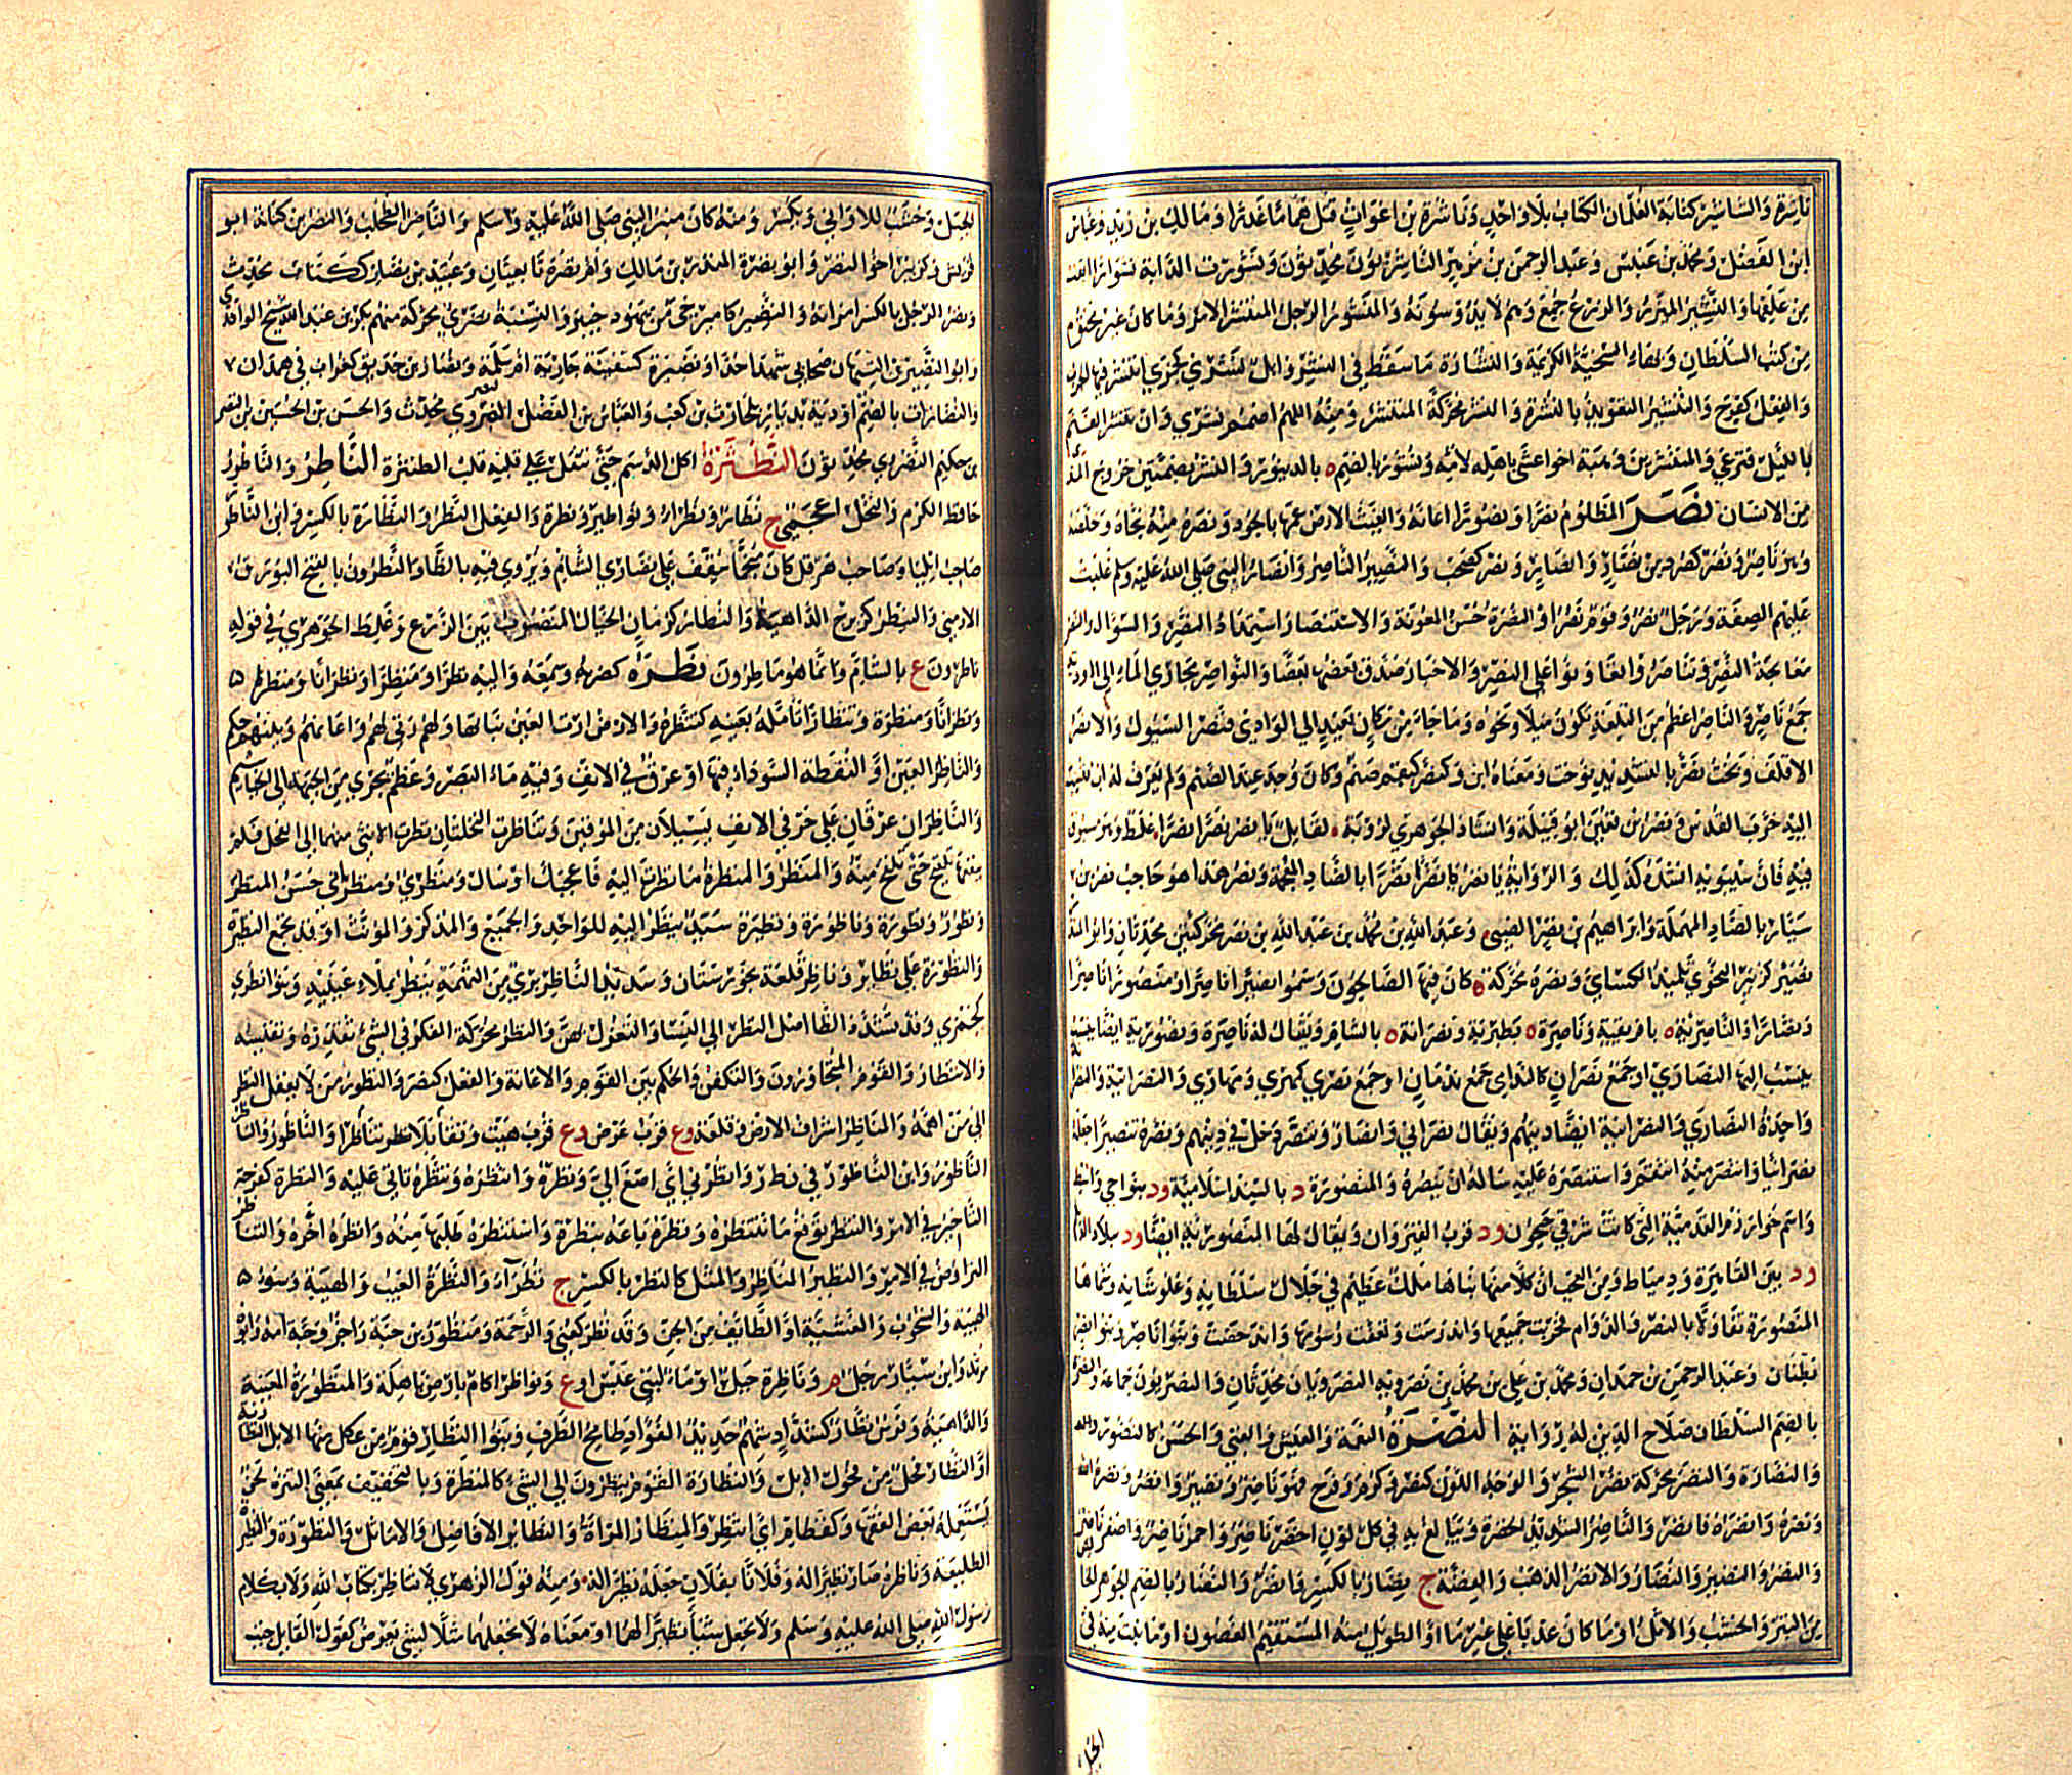 ناشرة والتناشير كتابة الغلمان الكتاب بلا واحد وناشرة بن اغواث قتل هماما غدرا ومالك بن زيد وعباس
ابن الفضل ومحمد بن عنبس وعبد الرحمن بن مزهر الناشريون محدثون ونشورت الدابة نشوارا ابقت
من علفها والنشير المئزر والزرع جمع وهم لا يدوسونه والمنشور الرجل المنتشر الامر وما كان غير مختوم
من كتب السلطان وبهاء السخية الكريمة والنشارة ما سقط في النشر وابل نشرى كجمزى انتشر فيها الجرب
والفعل كفرح والتنشير التعويذ بالنشرة والنشر محركة المنتشر ومنه اللهم اضمم نشري وان تنتشر الغنم
بالليل فترعى والمنتشر بن وهب اخو اعشى باهلة لامه ونشورة بالضم ه بالدينور والنشر بضمتين خروج المذي
من الانسان نصر المظلوم نصرا ونصورا اعانه والغيث الارض عمها بالجود ونصره منه نجاه وخلصه
وهو ناصر ونصر كصرد من نصار وانصار ونصر كصحب والنصير الناصر وانصار النبي صلى الله عليه وسلم غلبت
عليهم الصفة ورجل نصر وقوم نصر او النصرة حسن المعونة والاستنصار استمداد النصر والسؤال والتنصر
معالجة النصر وتناصروا تعاونوا على النصر والاخبار صدق بعضها بعضا والنواصر مجاري الماء الى الاودية
جمع ناصر والناصر اعظم من التلعة يكون ميلا ونحوه وما جاء من مكان بعيد الى الوادي فنصر السيول والانصر
الاقلف وبخت نصر بالتشديد بوخت ومعناه ابن ونصر كبقم صنم وكان وجد عند الصنم ولم يعرف له اب فنسب
اليه خرب القدس ونصر بن قعين ابو قبيلة وانشاد الجوهري لرؤبة لقائل يا نصر نصرا نصرا غلط وهو مسبوق
فيه فان سيبويه انشده كذلك والرواية يا نصر نصرا نضرا بالضاد المعجمة ونضر هذا هو حاجب نصر بن
سيار بالصاد المهملة وابراهيم بن نصر الضبي وعبد الله بن محمد بن عبد الله بن نصر محركتين محدثان وابو المنذر
نصير كزبير النحوي تلميذ الكسائي ونصرة محركة ه كان فيها الصالحون وسموا نصيرا ناصرا ومنصورا
ونصارا والناصرية ه بافريقية وناصرة ه بطبرية ونصرانة ه بالشام ويقال له ناصرة ونصورية ايضا
ينسب اليها النصارى او جمع نصران كالندامى جمع ندمان او جمع نصري كمهري ومهارى والنصرانية والنصرانة
واحدة النصارى والنصرانية ايضا دينهم ويقال نصراني وانصار وتنصر دخل في دينهم ونصره تنصيرا جعله
نصرانيا وانتصر منه انتقم واستنصره عليه ساله ان ينصره والمنصورة د بالسند اسلامية ود بنواحي واسط
واسم خوارزم القديمة التي كانت شرقي جيحون ود قرب القيروان ويقال لها المنصورية ايضا ود ببلاد الديلم
ود بين القاهرة ودمياط ومن العجب ان كلا منها بناها ملك عظيم في جلال سلطانه وعلو شانه وسماها
المنصورة تفاؤلا بالنصر والدوام فخربت جميعها واندرست وتعفت رسومها واندحضت وبنو ناصر وبنو نصر
بطنان وعبد الرحمن بن حمدان ومحمد بن علي بن محمد بن نصرويه النصرويان محدثان والنصريون جماعة والنصرة
بالضم السلطان صلاح الدين له رواية النضرة النعمة والعيش والغنى والحسن كالنضور
والنضارة والنضر محركة نضر الشجر والوجه اللون كنصر وكرم وفرح فهو ناضر ونضير وانضر ونضره الله
ونضره وانضره فانضر والناضر الشديد الخضرة ويبالغ به في كل لون اخضر ناضر واحمر ناضر واصفر ناضر
والنضر والنضير والنضار والانضر الذهب والفضة ج نضار بالكسر وانضر والنضار بالضم الجوهر الخالص
من التبر والخشب والاثل او ما كان عذيا على غير ماء او الطويل منه المستقيم الغصون او ما نبت منه في
الجبل
الجبل وخشب للاواني ويكسر ومنه كان منبر النبي صلى الله عليه وسلم والناضر الطحلب والنضر بن كنانة ابو
قريش وكزبير اخو النضر وابو نضرة المنذر بن مالك وام نضرة تابعيتان وعبيد بن نضلة ككتاب محدث
ونضر الرجل بالكسر امراته والنضير كامير حي من يهود خيبر والنسبة نضري محركة منهم بكر بن عبد الله شيخ الواقدي
وابو النضير بن التيهان صحابي شهد احدا ونضيرة كسفينة جارية ام سلمة ونضار بن حديق كغراب في همدان
والنضارات بالضم اودية بديار بلحارث بن كعب والعباس بن الفضل النضروي محدث والحسن بن الحسين بن النضر
بن حكيم النضروي محدثون النطثرة اكل الدسم حتى يثقل على قلبه قلب الطنثرة الناطر والناطور
حافظ الكرم والنخل اعجمي ج نطار ونطراء ونواطير ونطرة والفعل النطر والنطارة بالكسر وابن الناطور
صاحب ايليا وصاحب هرقل كان منجما سقف على نصارى الشام ويروى فيه بالظاء والنطرون بالفتح البورق
الارمني والنيطر كزبرج الداهية والنطار كرمان الخيال المنصوب بين الزرع وغلط الجوهري في قوله
ناطرون ع بالشام وانما هو ماطرون نظره كضربه وسمعه واليه نظرا ومنظرا ونظرانا ومنظرة
ونظرانا ومنظرة وتنظارا تامله بعينه كتنظره والارض ارت العين نباتها ولهم رثى لهم واعانهم وبينهم حكم
والناظر العين او النقطة السوداء فيها او عرق في الانف وفيه ماء البصر وعظم يجري من الجبهة الى الخياشيم
والناظران عرقان على حرفي الانف يسيلان من المؤقين وتناظرت النخلتان نظرت الانثى منهما الى الفحل فلم
ينفعها تلقيح حتى تلقح منه والمنظر والمنظرة ما نظرت اليه فاعجبك او ساءك ومنظري ومنظراني حسن المنظر
ونظور ونظورة وناظورة ونظيرة سيد ينظر اليه للواحد والجميع والمذكر والمؤنث او قد تجمع النظيرة
والنظورة على نظائر وناظر قلعة بخوزستان وسديد الناظر بريء من التهمة ينظر بملء عينيه وبنو نظرى
كجمزى وقد تشدد الظاء اهل النظر الى النساء والتغزل بهن والنظر محركة الفكر في الشيء تقدره وتقيسه
والانتظار والقوم المتجاورون والتكهن والحكم بين القوم والاعانة والفعل كنصر والنظور من لا يغفل النظر
الى من اهمه والمناظر اشراف الارض وقلعة وع قرب عرض وع قرب هيت وتناظرا تقابلا والناظور والناظر
الناطور وابن الناظور في ن ط ر وانظرني اي اصغ الي ونظره وانتظره وتنظره تانى عليه والنظرة كفرحة
التاخير في الامر والتنظر توقع ما تنتظره ونظره باعه بنظرة واستنظره طلبها منه وانظره اخره والتناظر
التراوض في الامر والنظير المناظر والمثل كالنظر بالكسر ج نظراء والنظرة العيب والهيبة وسوء
الهيئة والشحوب والغشية او الطائف من الجن وقد نظر كعني والرحمة ومنظور بن حبة راجز وحبة امه وابوه
مرثد وابن سيار رجل م وناظرة جبل او ماء لبني عبس او ع ونواظر اكام بارض باهلة والمنظورة المعيبة
والداهية وفرس نظار كشداد شهم حديد الفؤاد طامح الطرف وبنو النظار قوم من عكل منها الابل النظارية
او النظار فحل من فحول الابل والنظارة القوم ينظرون الى الشيء كالمنظرة وبالتخفيف بمعنى التنزه لحن
يستعمله بعض الفقهاء وكقطام اي انتظر والمنظار المرآة والنظائر الافاضل والاماثل والنظورة والنظيرة
الطليعة وناظره صار نظيرا له وفلانا بفلان جعله نظيرا له ومنه قول الزهري لا تناظر بكتاب الله ولا بكلام
رسول الله صلى الله عليه وسلم ولا تجعل شيئا نظيرا لهما او معناه لا تجعلهما مثلا لشيء يعرض كقول القائل جئت